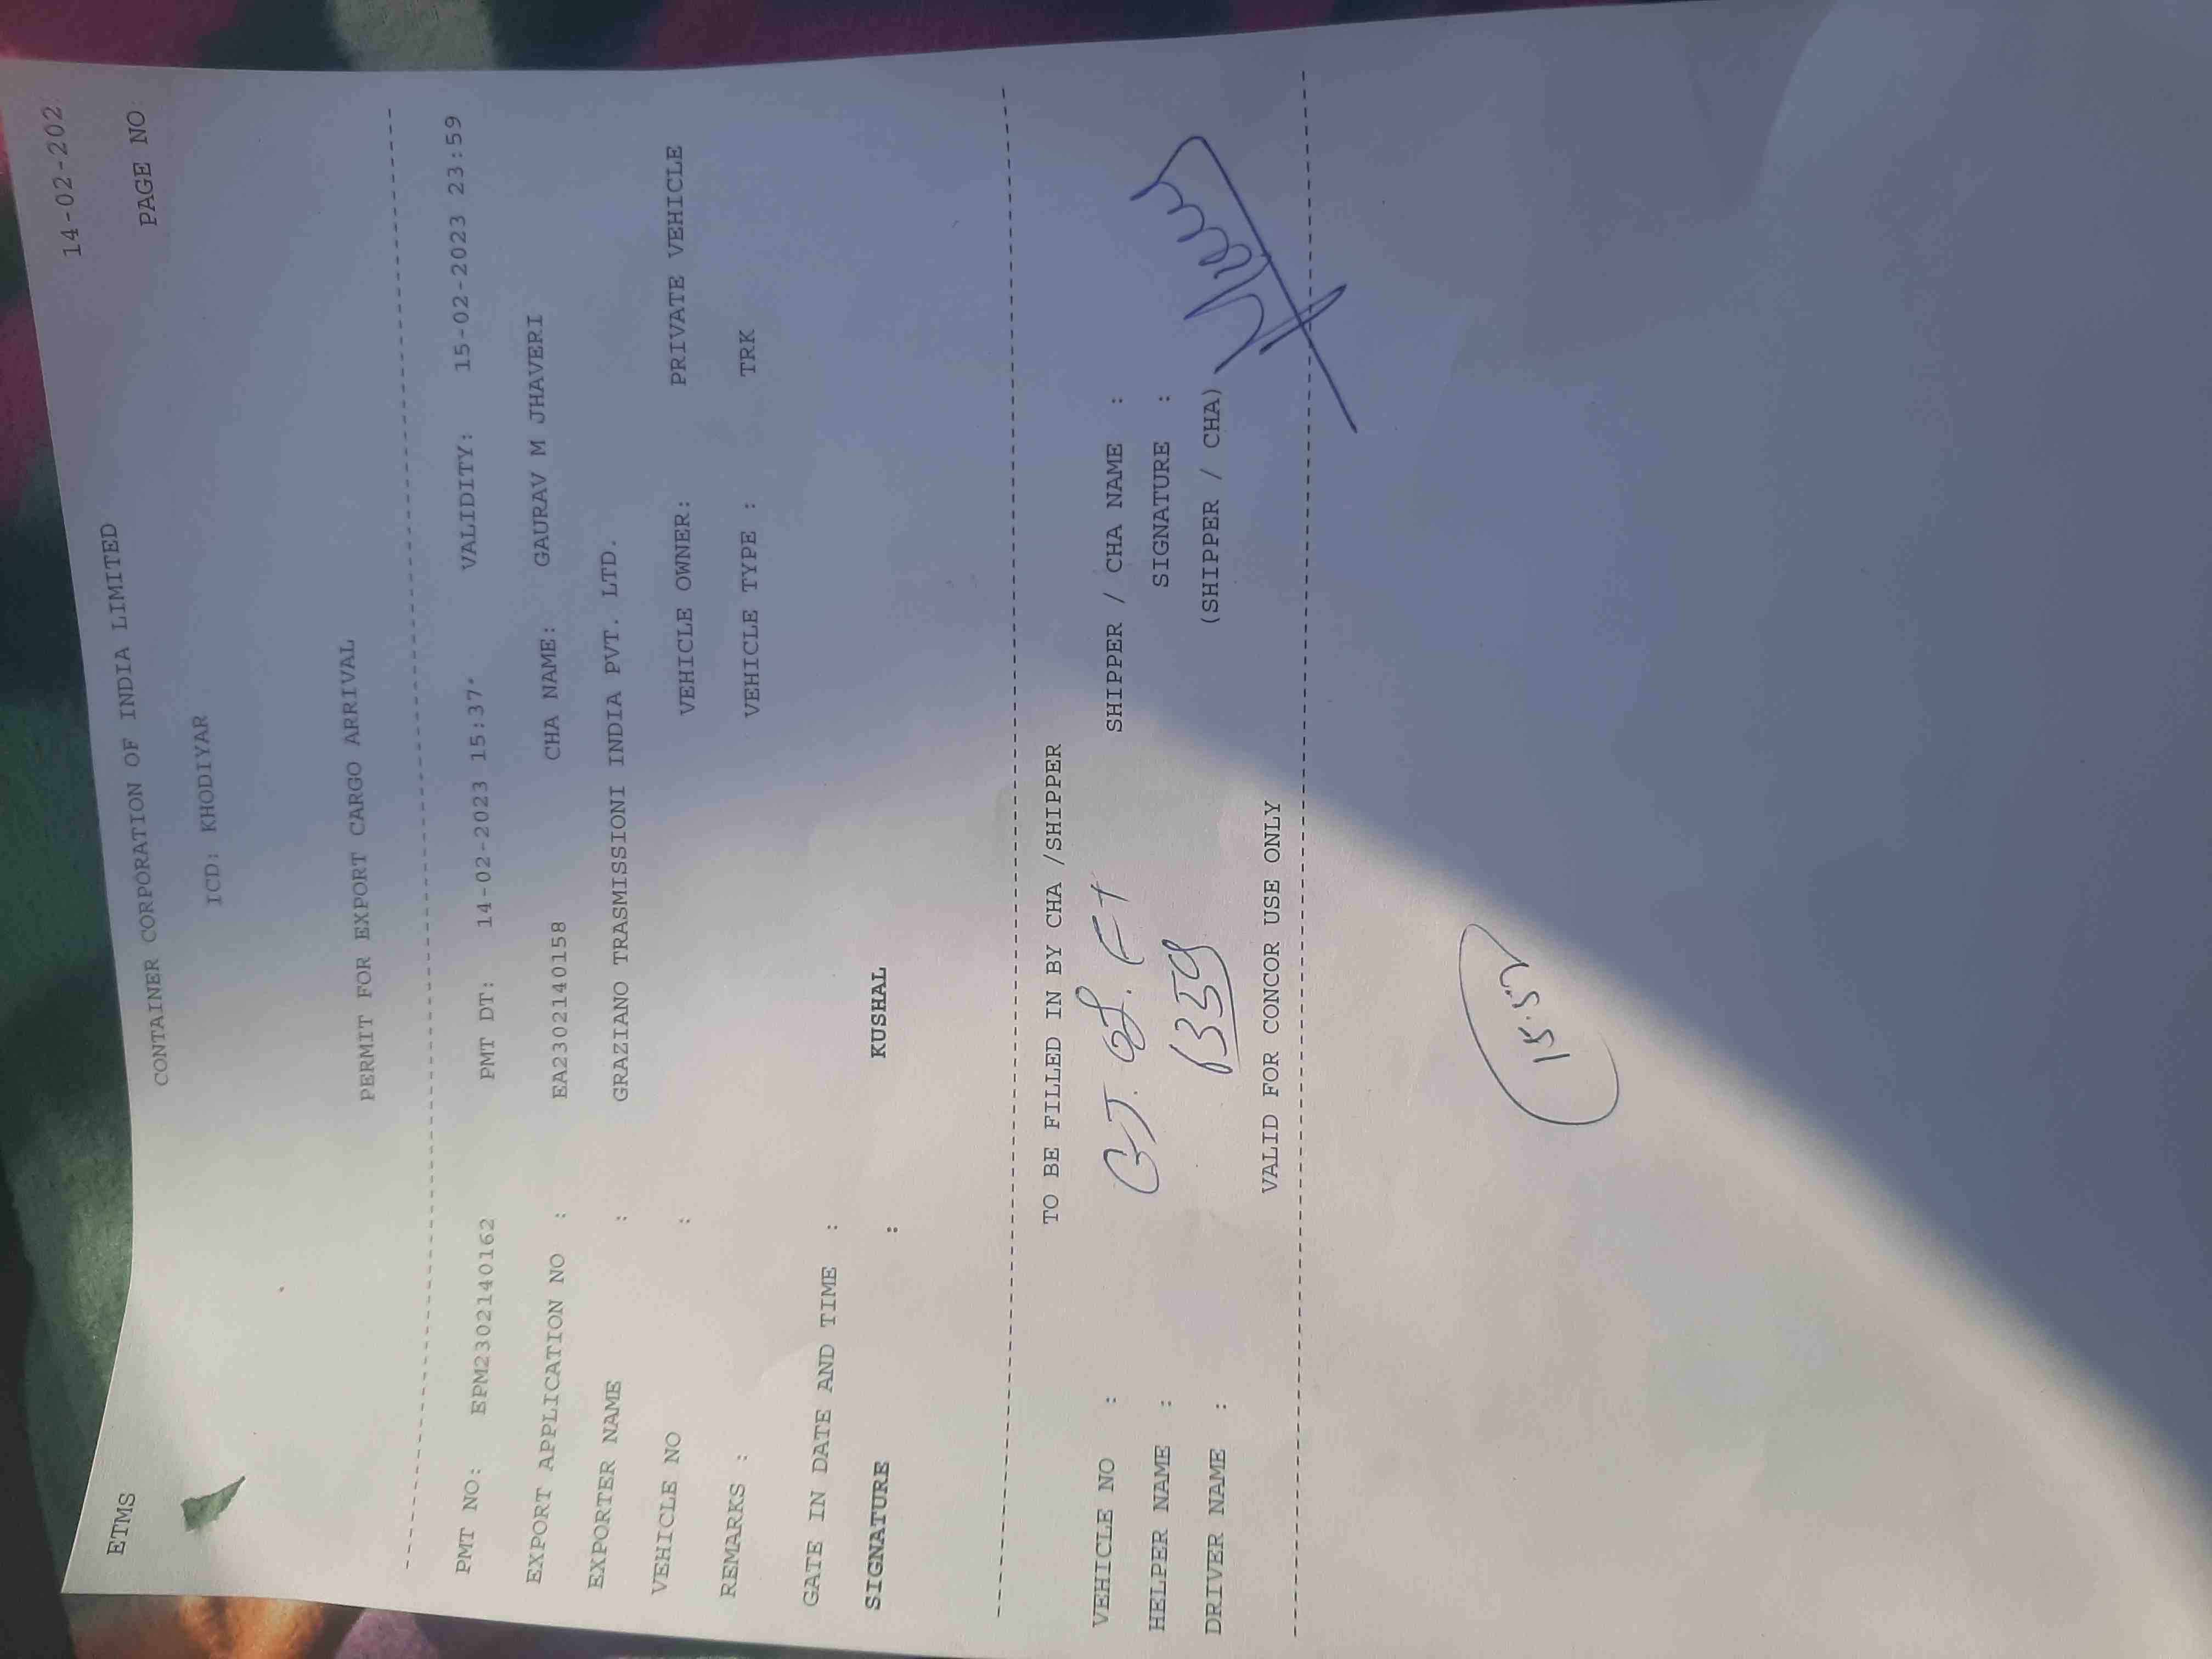 14-02-202
ETMS
CONTAINER CORPORATION OF INDIA LIMITED
PAGE NO
ICD: KHODIYAR
PERMIT FOR EXPORT CARGO ARRIVAL
PMT NO: EPM2302140162 PMT DT: 14-02-2023 15:37 VALIDITY: 15-02-2023 23:59
EXPORT APPLICATION NO : EA2302140158 CHA NAME: GAURAV M JHAVERI
EXPORTER NAME : GRAZIANO TRASMISSIONI INDIA PVT. LTD.
VEHICLE NO : VEHICLE OWNER: PRIVATE VEHICLE
REMARKS : VEHICLE TYPE : TRK
GATE IN DATE AND TIME :
SIGNATURE : KUSHAL
TO BE FILLED IN BY CHA /SHIPPER
VEHICLE NO : GJ. SHIPPER / CHA NAME :
HELPER NAME : 1359 SIGNATURE :
DRIVER NAME : (SHIPPER / CHA)
VALID FOR CONCOR USE ONLY
15.52